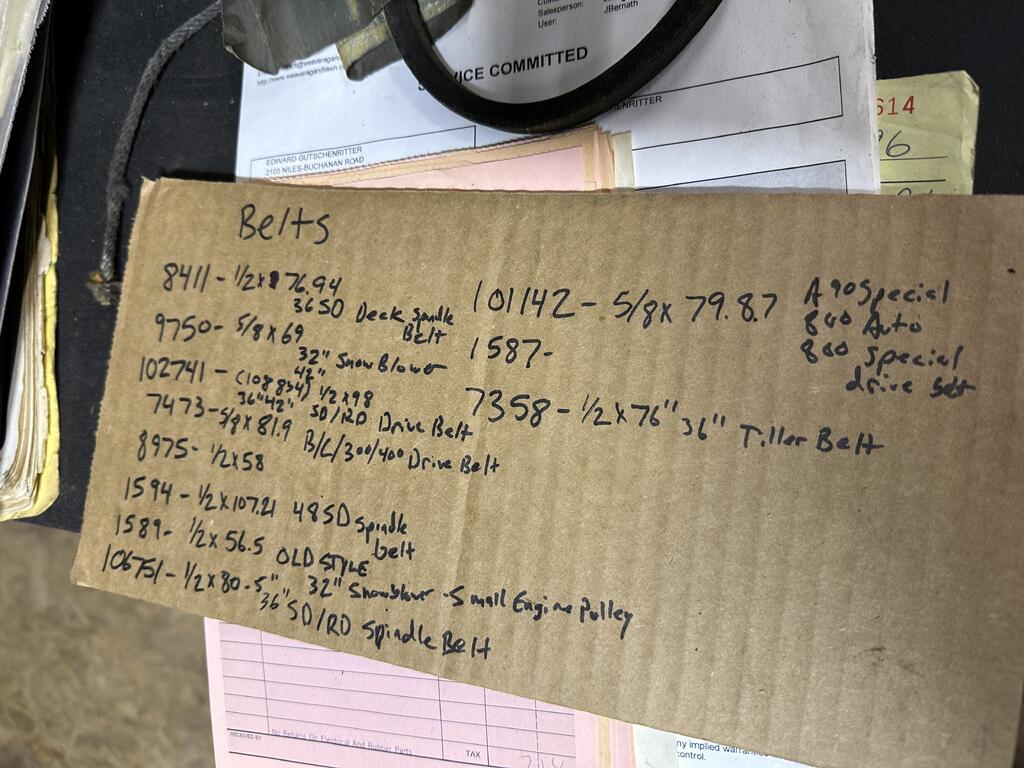 Salesperson:
User:
JBernath
http://www.weaveragandlawn.com
ICE COMMITTED
ENRITTER
614
EDWARD GUTSCHENRITTER
2103 NILES-BUCHANAN ROAD
Belts
8411 - 1/2 x 76.94
36 SD Deck Spindle
Belt
9750 - 5/8 x 69
32" Snow Blower
42"
102741 - (108834) 1/2 x 98
36" 42" SD/RD Drive Belt
7473 - 5/8 x 81.9 B/C/300/400 Drive Belt
8975 - 1/2 x 58
1594 - 1/2 x 107.21 48SD Spindle
belt
1589 - 1/2 x 56.5 OLD STYLE
106751 - 1/2 x 80.5", 32" Snowblower - Small Engine Pulley
36" SD/RD Spindle Belt
101142 - 5/8 x 79.8.7 A90 Special
800 Auto
800 Special
drive belt
1587 -
7358 - 1/2 x 76" 36" Tiller Belt
RECEIVED BY
No Returns On Electrical And Rubber Parts
TAX
ny implied
control.